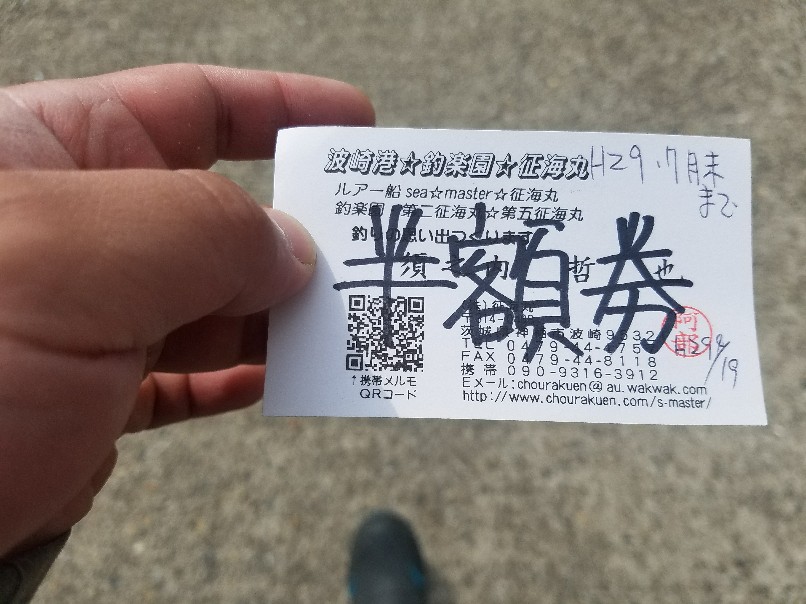 波崎港☆釣楽園☆征海丸
H29.7月末
まで
ルアー船 sea☆master☆征海丸
釣楽園 第二征海丸☆第五征海丸
釣りの思い出つくります
半額券
須之内 哲也
茨城県神栖市波崎9532
TEL 0479-44-
FAX 0479-44-8118
携帯 090-9316-3912
Eメール:chourakuen@au.wakwak.com
http://www.chourakuen.com/s-master/
↑携帯メルモ
QRコード
阿部